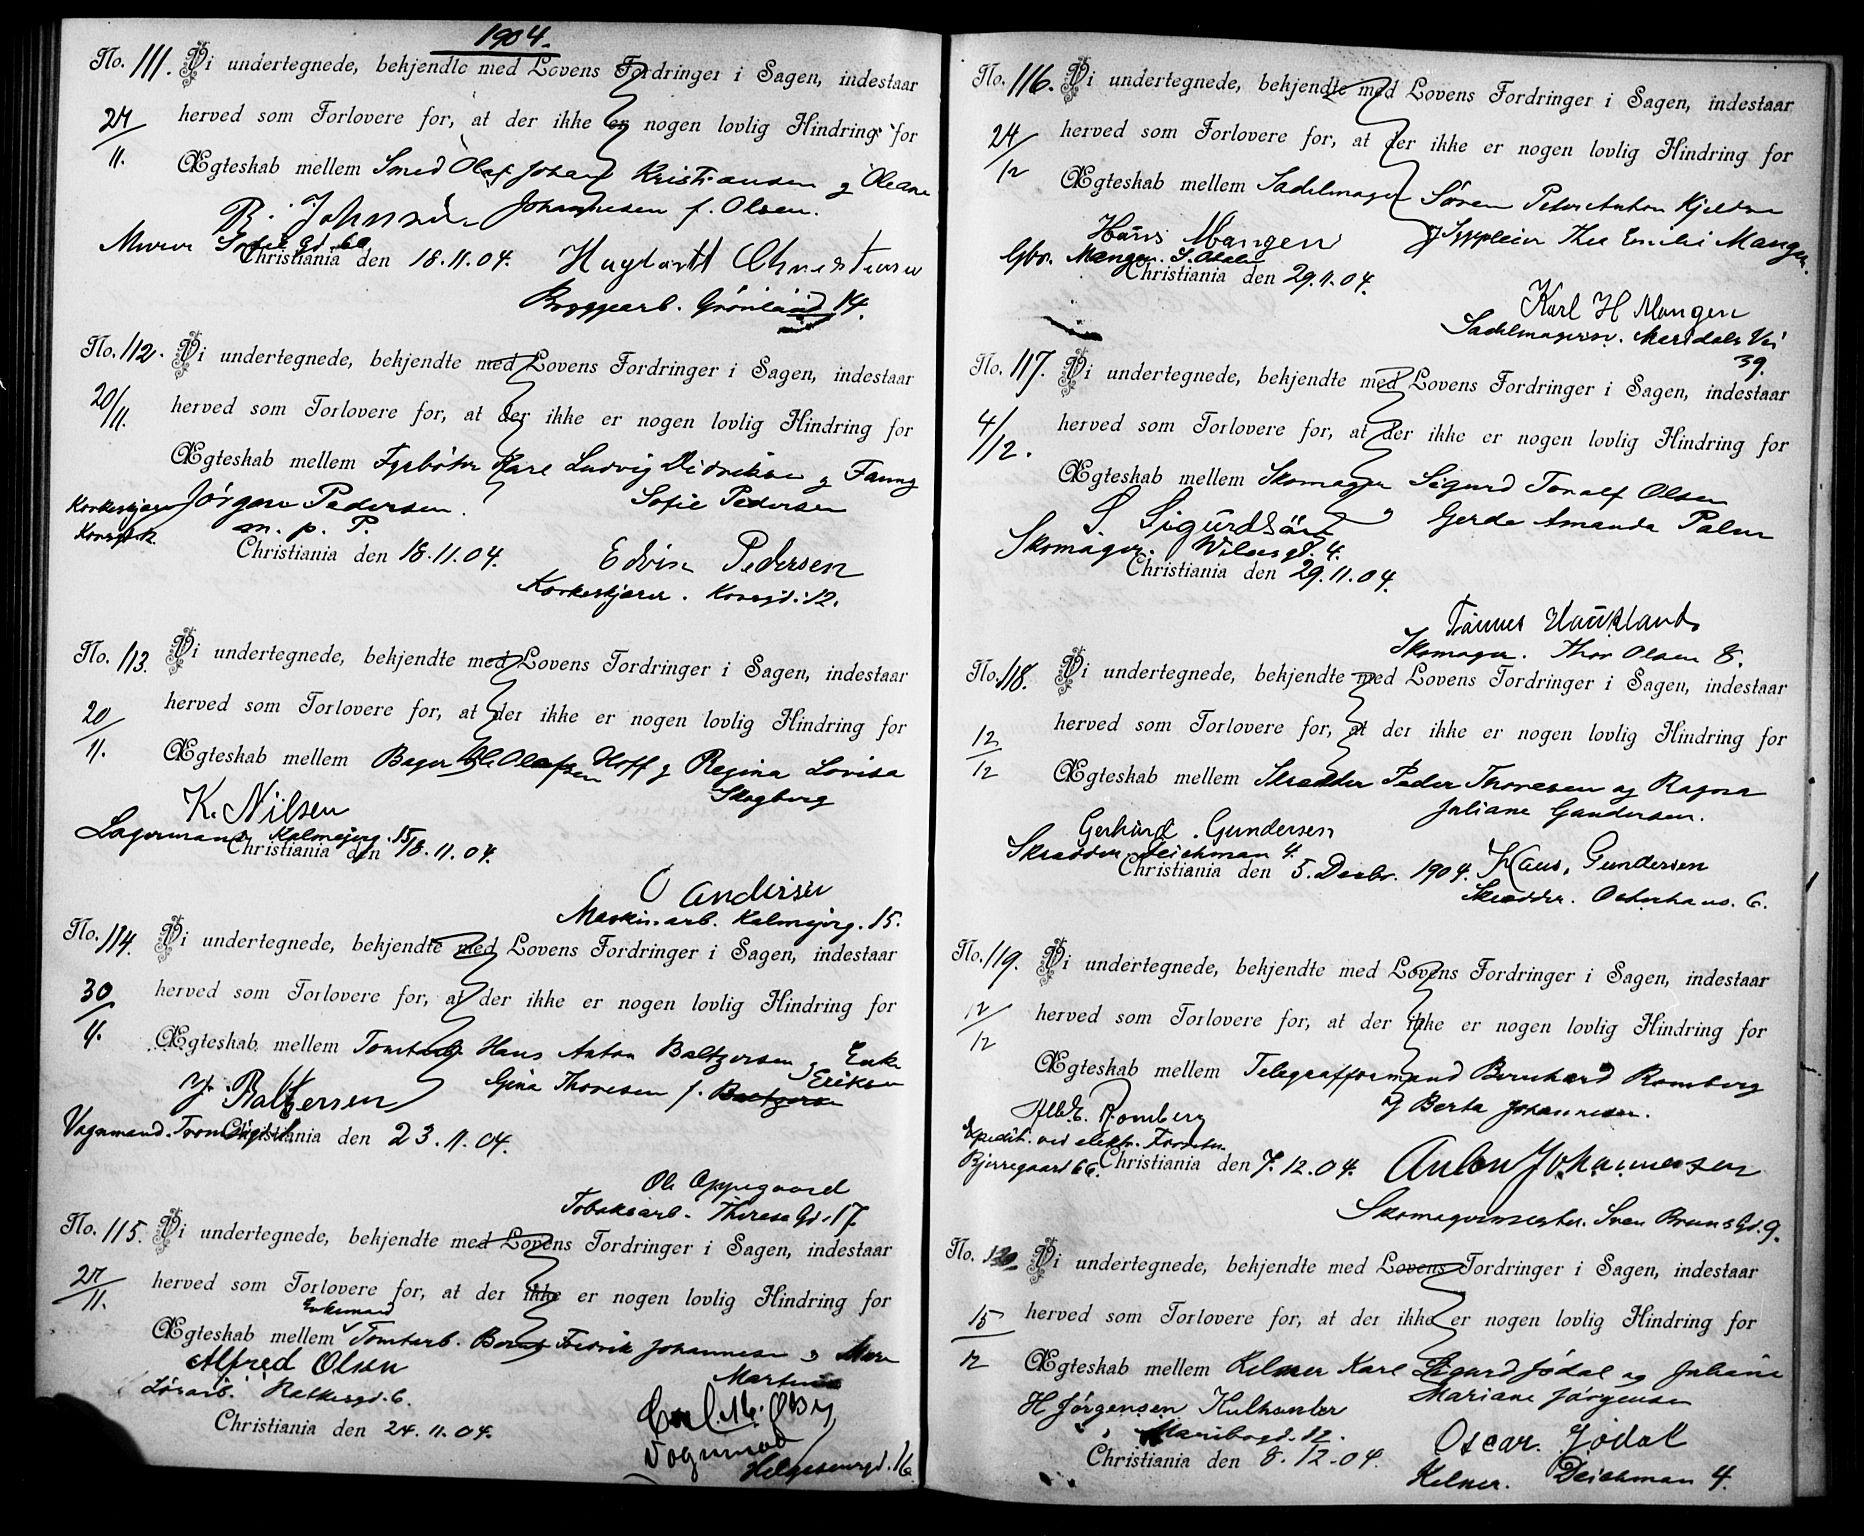 1904.
No. 111. Vi undertegnede, bekjendte med Lovens Fordringer i Sagen, indestaar
27/11. herved som Forlovere for, at der ikke er nogen lovlig Hindring for
Ægteskab mellem Smed Olaf Johan Kristiansen og Oleane
Johannesen f. Olsen.
B. Johnsen
Murer Sofie gd.
Christiania den 18.11.04.
Bryggearb. Grønland 14.
No. 112. Vi undertegnede, bekjendte med Lovens Fordringer i Sagen, indestaar
20/11. herved som Forlovere for, at der ikke er nogen lovlig Hindring for
Ægteskab mellem Fyrbøter Karl Ludvig Didriksen og Fanny
Sofie Pedersen
Korkeskjærer Jørgen Pedersen
m. p. P.
Christiania den 18.11.04.
Edvin Pedersen
Korkeskjærer. Korsgd. 12.
No. 113. Vi undertegnede, bekjendte med Lovens Fordringer i Sagen, indestaar
20/11. herved som Forlovere for, at der ikke er nogen lovlig Hindring for
Ægteskab mellem Bager Ole Olafsen Hoff og Regina Lovisa
Skogberg
K. Nilsen
Lagermand Kalmejerg. 15
Christiania den 18.11.04.
O Andersen
Maskinarb. Kalmejerg. 15.
No. 114. Vi undertegnede, bekjendte med Lovens Fordringer i Sagen, indestaar
30/11. herved som Forlovere for, at der ikke er nogen lovlig Hindring for
Ægteskab mellem Tomtearb. Hans Anton Baltzersen og Enke
Gina Thoresen f. Baltzersen Eriksen
J. Baltzersen
Vognmand.
Christiania den 23.11.04.
Ole Oppegaard
Tobaksarb. Therese Gd. 17.
No. 115. Vi undertegnede, bekjendte med Lovens Fordringer i Sagen, indestaar
27/11. herved som Forlovere for, at der ikke er nogen lovlig Hindring for
Enkemand
Ægteskab mellem Tomtearb. Bernt Fredrik Johannesen og
Alfred Olsen
Rathkesgd. 6.
Christiania den 24.11.04.
Vognmand
Helgesensgd. 16.
No. 116. Vi undertegnede, bekjendte med Lovens Fordringer i Sagen, indestaar
24/12 herved som Forlovere for, at der ikke er nogen lovlig Hindring for
Ægteskab mellem Sadelmager Søren Peter Anton Kjeldsen
og Sypleien Thea Emilie Mangen.
Hans Mangen
Gbr. Mangen. S. Odalen
Christiania den 29.11.04.
Karl H Mangen
Sadelmagersv. Maridals Vei
39.
No. 117. Vi undertegnede, bekjendte med Lovens Fordringer i Sagen, indestaar
4/12. herved som Forlovere for, at der ikke er nogen lovlig Hindring for
Ægteskab mellem Skomager Sigurd Toralf Olsen
og Gerda Amanda Palm
S. Sigurdsön
Skomager. Wilsesgd. 4.
Christiania den 29.11.04.
Skomager. Thor Olsen 8.
No. 118. Vi undertegnede, bekjendte med Lovens Fordringer i Sagen, indestaar
12/12 herved som Forlovere for, at der ikke er nogen lovlig Hindring for
Ægteskab mellem Skrædder Peder Thoresen og Ragna
Juliane Gundersen.
Gerhard Gundersen
Skrædder. Deichman 4.
Christiania den 5. Decbr. 1904. Hans, Gundersen
Skrædder. Osterhaus. 6.
No. 119. Vi undertegnede, bekjendte med Lovens Fordringer i Sagen, indestaar
12/12 herved som Forlovere for, at der ikke er nogen lovlig Hindring for
Ægteskab mellem Telegrafformand Bernhard Romberg
og Berta Johannesen.
Alb. E. Romberg
Expedit. ved elektr. Forretn.
Bjerregaard 66. Christiania den 7.12.04. Anton Johannessen
Skomagermester. Sven Bruns Gd. 9.
No. 120 Vi undertegnede, bekjendte med Lovens Fordringer i Sagen, indestaar
15/12 herved som Forlovere for, at der ikke er nogen lovlig Hindring for
Ægteskab mellem Kelner Karl Sigurd Jødal og Juliane
Mariane Jørgensen
H Jørgensen Kulhandler
Maribogd. 12.
Christiania den 8.12.04.
Oscar. Jodal
Kelner. Deichman 4.